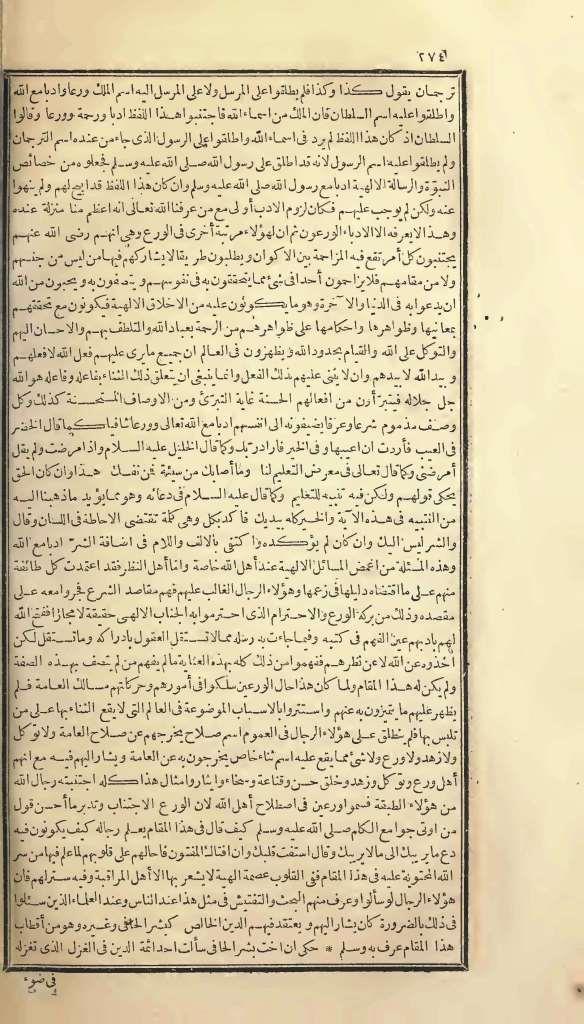 ٢٧٤
ترجمان يقول كذا وكذا فلم يطلقوا على المرسل ولا على المرسل اليه اسم الملك ورعا وادبا مع الله
واطلقوا عليه اسم السلطان فان الملك من اسماء الله فاجتنبوا هذا اللفظ ادبا ورحمة وورعا وقالوا
السلطان اذ كان هذا اللفظ لم يرد فى اسماء الله واطلقوا على الرسول الذى جاء من عنده اسم الترجمان
ولم يطلقوا عليه اسم الرسول لانه قد اطلق على رسول الله صلى الله عليه وسلم فجعلوه من خصائص
النبوّة والرسالة الالهية ادبا مع رسول الله صلى الله عليه وسلم وان كان هذا اللفظ قد ابيح لهم ولم ينهوا
عنه ولكن لم يوجب عليهم فكان لزوم الادب أولى مع من عرفنا الله تعالى انه اعظم منا منزلة عنده
وهذا لا يعرفه الا الادباء الورعون ثم ان لهؤلاء مرتبة أخرى فى الورع وهى انهم رضى الله عنهم
يجتنبون كل أمر تقع فيه المزاحمة بين الاكوان ويطلبون طريقا لا يشاركهم فيها من ليس من جنسهم
ولا من مقامهم فلا يزاحمون أحدا فى شئ مما يتحققون به فى نفوسهم ويتصفون به ويحبون من الله
ان يدعوا به فى الدنيا والآخرة وهو ما يكونون عليه من الاخلاق الالهية فيكونون مع تحققهم
بمعانيها وظواهرها واحكامها على ظواهرهم من الرحمة بعباد الله والتلطف بهم والاحسان اليهم
والتوكل على الله والقيام بحدود الله ويظهرون فى العالم ان جميع ما يرى عليهم فعل الله لا فعلهم
وبيد الله لا بيدهم وان لا يثنى عليهم بذلك الفعل وانما ينبغى ان يتعلق ذلك الثناء بفاعله وفاعله هو الله
جل جلاله فيتبرّأون من افعالهم الحسنة غاية التبرّى ومن الاوصاف المستحسنة كذلك وكل
وصف مذموم شرعا وعرفا يضيفونه الى انفسهم ادبا مع الله تعالى وورعا شافيا كما قال الخضر
فى العيب فأردت ان اعيبها وفى الخير فأراد ربك وكما قال الخليل عليه السلام واذا مرضت ولم يقل
أمرضنى وكما قال تعالى فى معرض التعليم لنا وما أصابك من سيئة فمن نفسك هذا وان كان الحق
يحكى قولهم ولكن فيه تنبيه للتعليم وكما قال عليه السلام فى دعائه وهو مما يؤيد ما ذهبنا اليه
من التنبيه فى هذه الآية والخير كله بيديك فأكد بكل وهى كلمة تقتضى الاحاطة فى اللسان وقال
والشر ليس اليك وان كان لم يؤكده واكتفى بالالف واللام فى اضافة الشرّ ادبا مع الله
وهذه المسئلة من اغمض المسائل الالهية عند أهل الله خاصة وأما أهل النظر فقد اعتمدت كل طائفة
منهم على ما اقتضاه دليلها فى زعمها وهؤلاء الرجال الغالب عليهم فهم مقاصد الشرع فجروا معه على
مقصده وذلك من بركة الورع والاحترام الذى احترموا به الجناب الالهى حقيقة لا مجازا ففتح الله
لهم بادبهم عين الفهم فى كتبه وفيما جاءت به رسله مما لا تستقل العقول بادراكه وما تستقل لكن
أخذوه عن الله لا عن نظرهم ففهموا من ذلك كله بهذه العناية ما لم يفهم من لم يتصف بهذه الصفة
ولم يكن له هذا المقام ولما كان هذا حال الورعين سلكوا فى أمورهم وحركاتهم مسالك العامة فلم
يظهر عليهم ما يتميزون به عنهم واستتروا بالاسباب الموضوعة فى العالم التى لا يقع الثناء بها على من
تلبس بها فلم ينطلق على هؤلاء الرجال فى العموم اسم صلاح يخرجهم عن صلاح العامة ولا توكل
ولا زهد ولا ورع ولا شئ مما يقع عليه اسم ثناء خاص يخرجون به عن العامة ويشار اليهم فيه مع انهم
أهل ورع وتوكل وزهد وخلق حسن وقناعة وسخاء وايثار وامثال هذا كله اجتنبته رجال الله
من هؤلاء الطبقة فسموا ورعين فى اصطلاح أهل الله لان الورع الاجتناب وتدبر ما أحسن قول
من اوتى جوامع الكلم صلى الله عليه وسلم كيف قال فى هذا المقام يعلم رجاله كيف يكونون فيه
دع ما يريبك الى ما لا يريبك وقال استفت قلبك وان افتاك المفتون فأحالهم على قلوبهم لما علم فيها من سر
الله المحتوية عليه فى هذا المقام ففى القلوب عصمة الهية لا يشعر بها الا أهل المراقبة وفيه ستر لهم فان
هؤلاء الرجال لو سألوا وعرف منهم البحث والتفتيش فى مثل هذا عند الناس وعند العلماء الذين سئلوا
فى ذلك بالضرورة كان يشار اليهم ويعتقد فيهم الدين الخالص كبشر الحافى وغيره وهو من أقطاب
هذا المقام عرف به وسلم * حكى ان اخت بشر الحافى سألت احد ائمة الدين فى الغزل الذى تغزله
فى ضوء